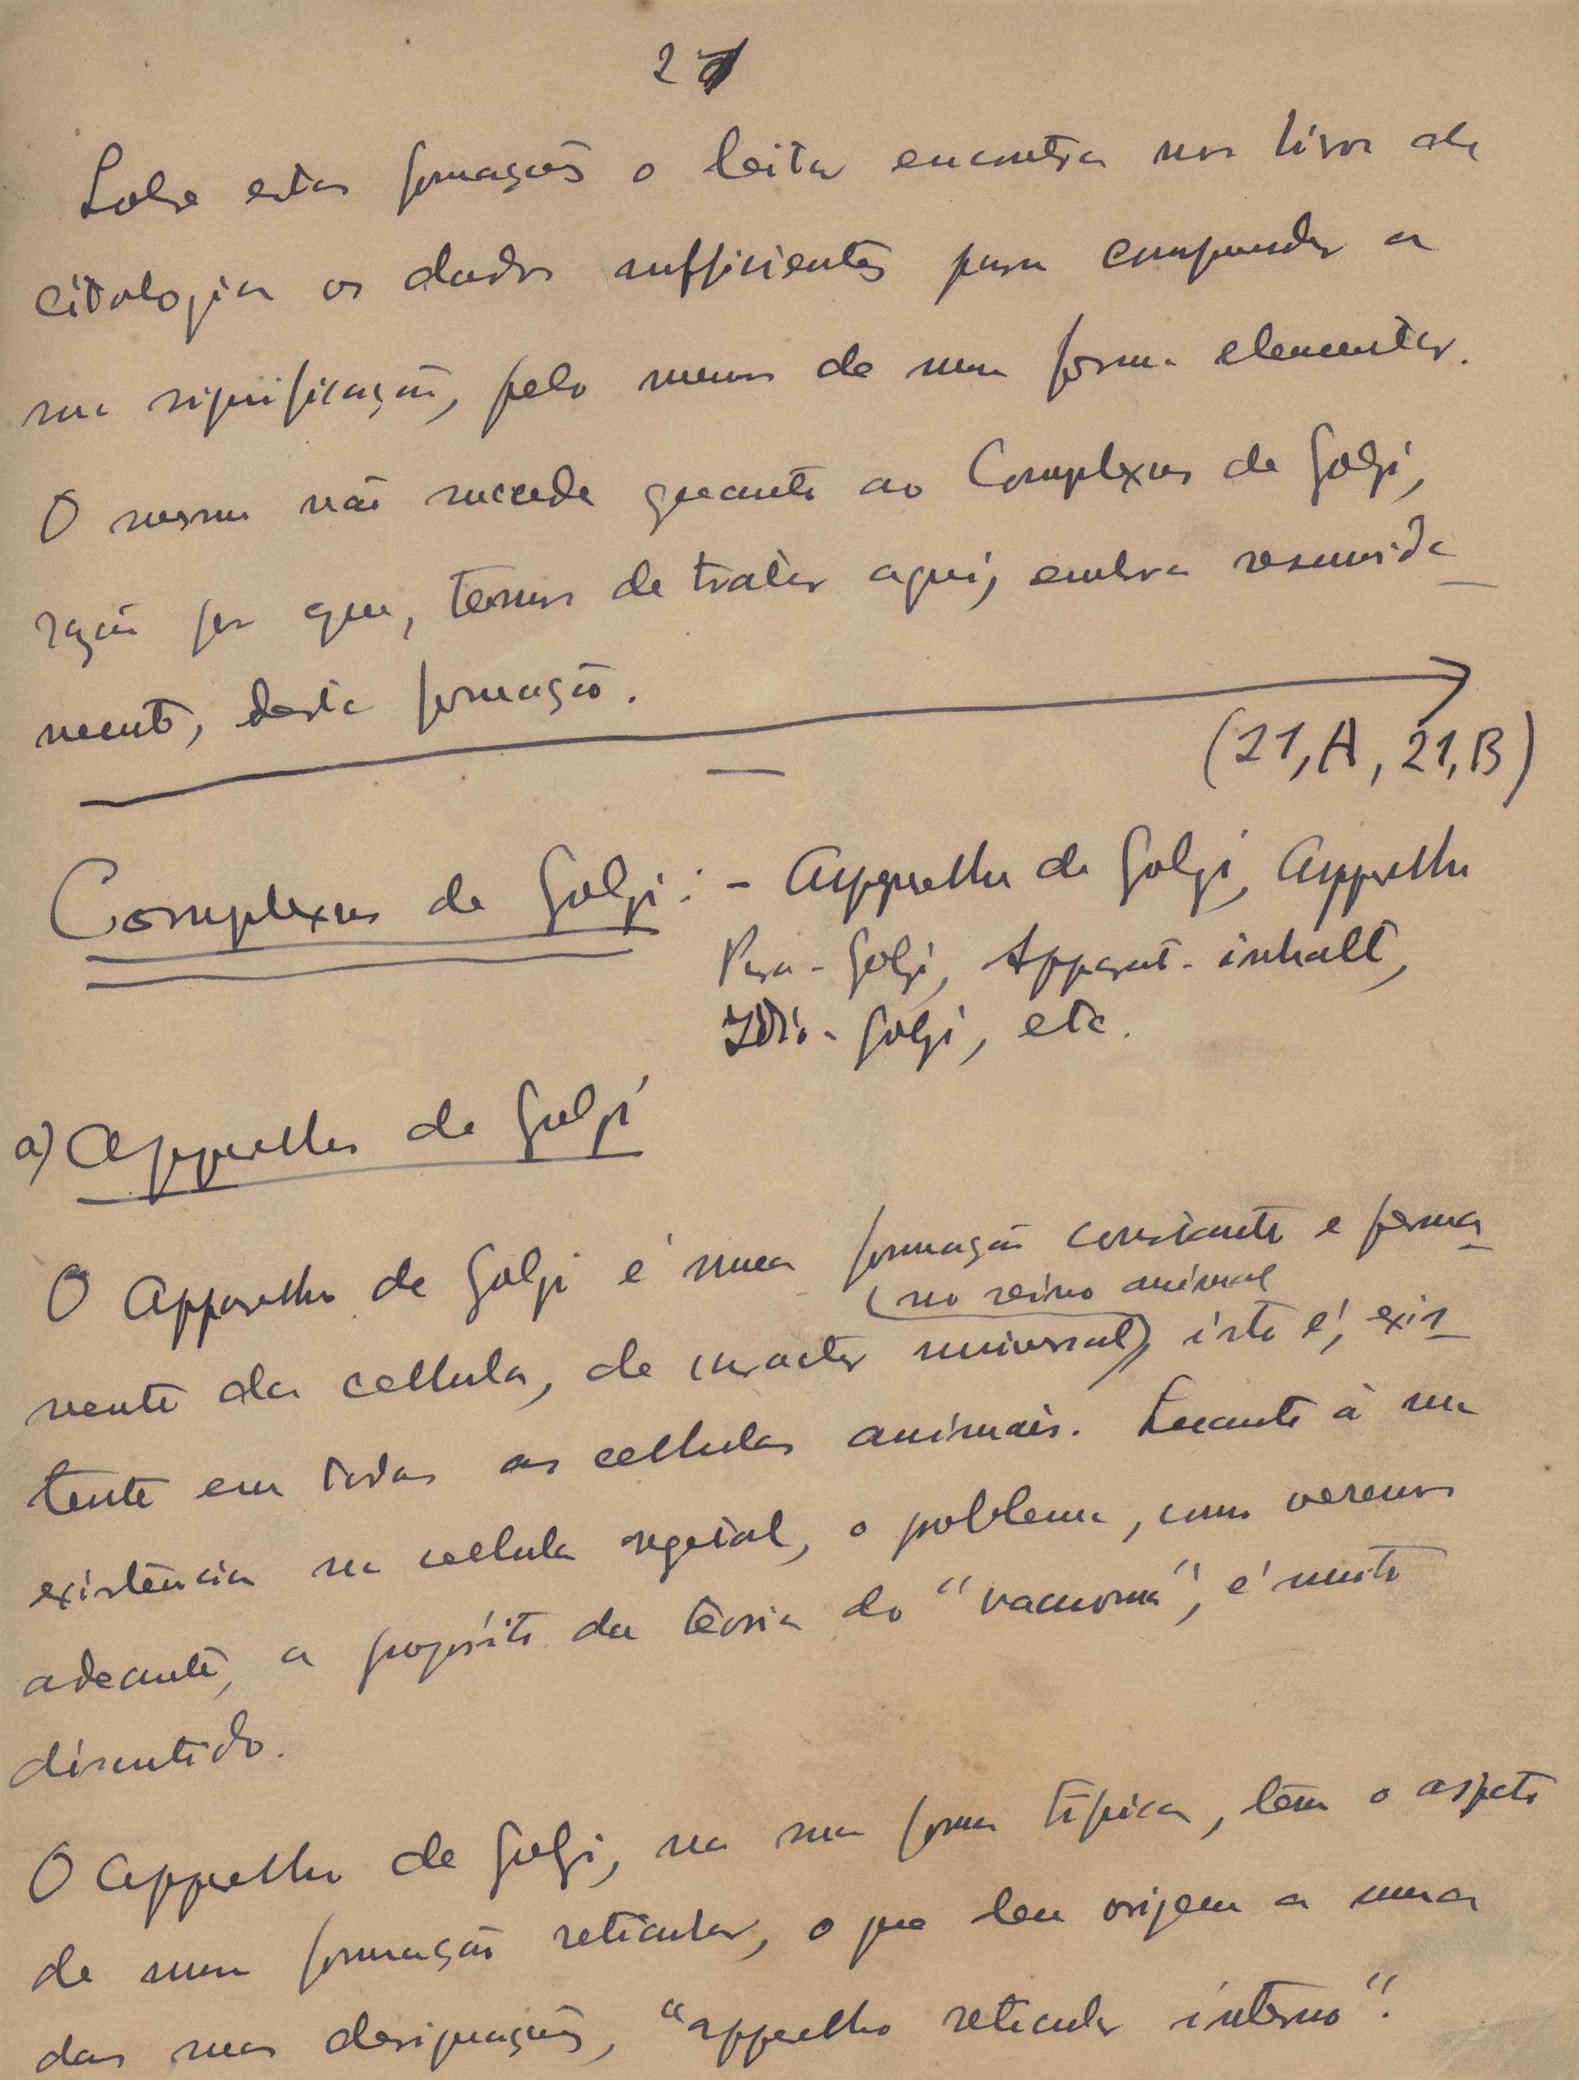 21
Sobre estas formações o leitor encontra nos livros de
citologia os dados sufficientes para comprender a
sua significação, pelo menos de uma forma elementar.
O mesmo não succede quanto ao Complexus de Golgi,
razão por que, temos de tratar aqui, embora resumida_
mente, desta formação.
(21,A, 21,B)
Complexus de Golgi: - Apparelho de Golgi, Apparelho
Para-Golgi, Apparat-inhalt,
Idio-Golgi, etc.
a) Apparelho de Golgi
O Apparelho de Golgi é uma formação constante e perma_
(no reino animal)
nente da cellula, de caracter universal, isto é, exis_
tente em todas as cellulas animais. Quanto à sua
existência na cellula vegetal, o problema, como veremos
adeante, a proposito da teoria do "vacuoma", é muito
discutido.
O Apparelho de Golgi, na sua forma tipica, tem o aspeto
de uma formação reticular, o que deu origem a uma
das suas designações, "apparelho reticular interno".